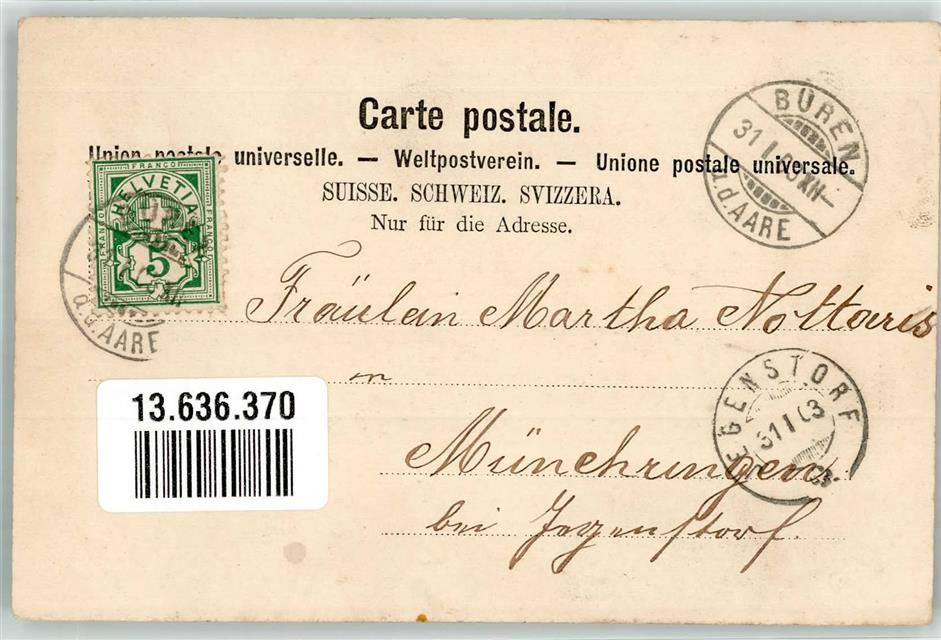 Carte postale.
Union postale universelle. — Weltpostverein. — Unione postale universale.
SUISSE. SCHWEIZ. SVIZZERA.
Nur für die Adresse.
BÜREN
31 I
a.d.AARE
FRANCO
HELVETIA
FRANCO
FRANCO
5
a.d.AARE
Fräulein Martha Nottaris
in
JEGENSTORF
31 I 03
13.636.370
Münchringen.
bei Jegenstorf.